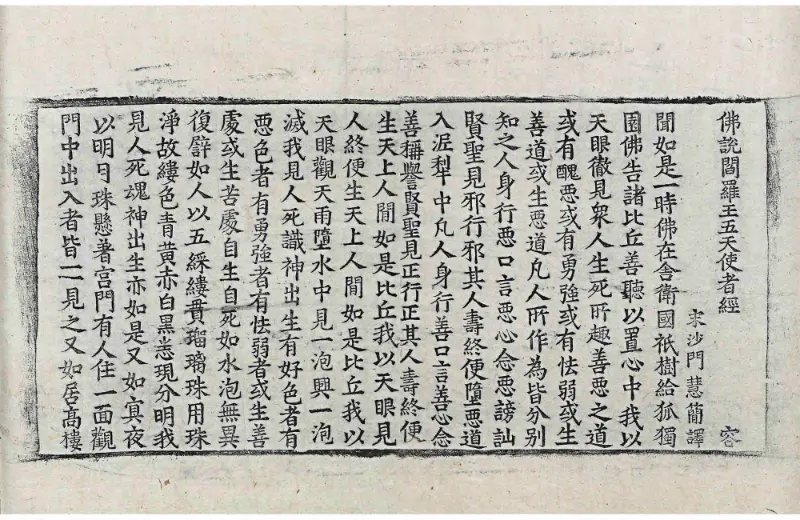 佛說閻羅王五天使者經
宋沙門慧簡譯 容
聞如是一時佛在舍衛國祇樹給孤獨
園佛告諸比丘善聽以置心中我以
天眼徹見衆人生死所趣善惡之道
或有醜惡或有勇強或有怯弱或生
善道或生惡道凡人所作為皆分別
知之人身行惡口言惡心念惡謗訕
賢聖見邪行邪其人壽終便墮惡道
入泥犁中凡人身行善口言善心念
善稱譽賢聖見正行正其人壽終便
生天上人間如是比丘我以天眼見
人終便生天上人間如是比丘我以
天眼觀天雨墮水中見一泡興一泡
滅我見人死識神出生有好色者有
惡色者有勇強者有怯弱者或生善
處或生苦處自生自死如水泡無異
復譬如人以五綵縷貫瑠璃珠用珠
淨故縷色青黃赤白黑悉現分明我
見人死魂神出生亦如是又如冥夜
以明月珠懸著宮門有人住一面觀
門中出入者皆一一見之又如居高樓